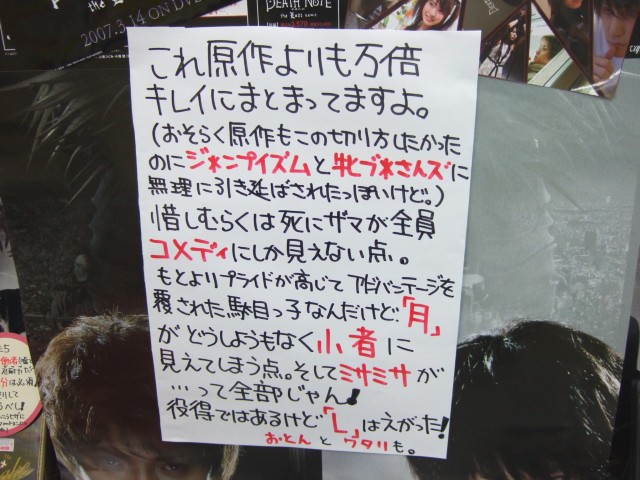 DEATH NOTE
the Last name
2007.3.14 ON DV
これ原作よりも万倍
キレイにまとまってますよ。
(おそらく原作もこの切り方したかった
のにジ*ンプイズムと牝ブ*さんズに
無理に引き延ばされたっぽいけど。)
惜しむらくは死にザマが全員
コメディにしか見えない点、。
もとよりプライドが高じてアドバンテージを
覆された駄目っ子なんだけど「月」
がどうしようもなく小者に
見えてしまう点。そしてミサミサが
…って全部じゃん!
役得ではあるけど「L」はえがった!
おとんとワタリも。